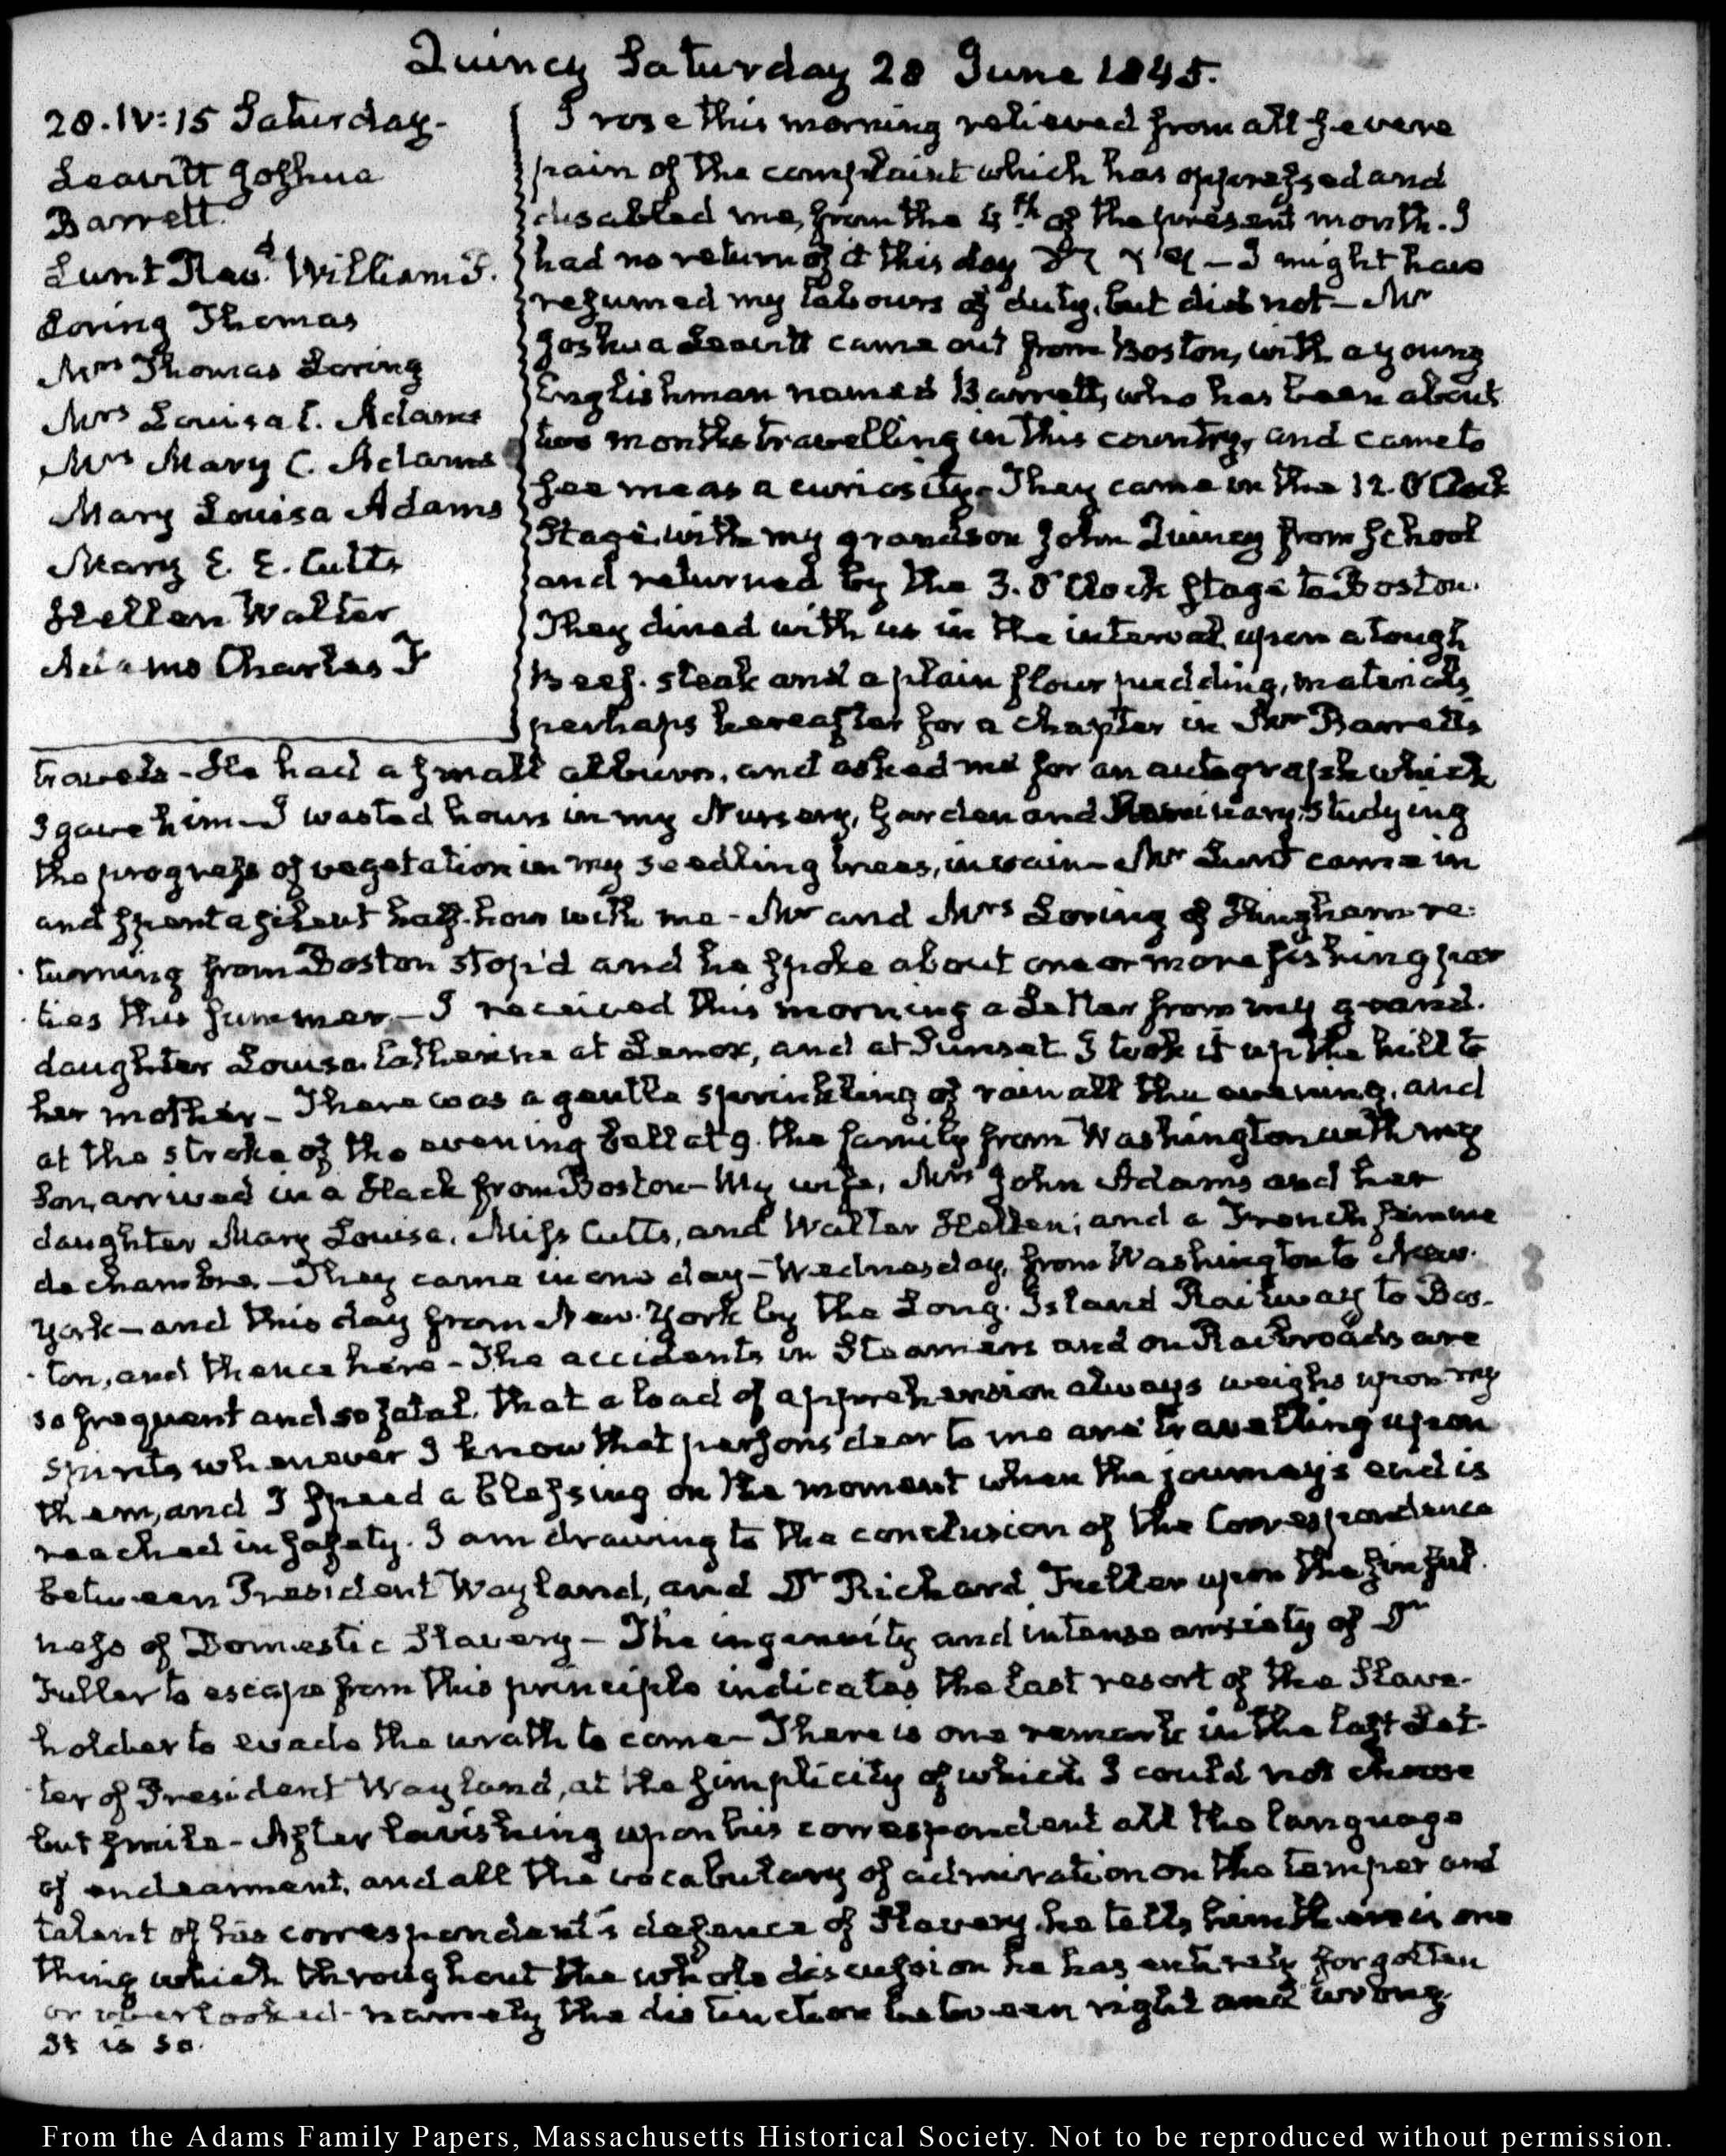 Quincy Saturday 28 June 1845.
28. IV:15 Saturday.
Leavitt Joshua
Barrett.
Lunt Revd. William P.
Loring Thomas
Mrs Thomas Loring
Mrs Louisa C. Adams
Mrs Mary C. Adams
Mary Louisa Adams
Mary E. E. Cutts
Hellen Walter
Adams Charles F
I rose this morning relieved from all severe
pain of the complaint which has oppressed and
disabled me, from the 4th of the present month. I
had no return of it this day — I might have
resumed my labours of duty, but did not — Mr
Joshua Leavitt came out from Boston, with a young
Englishman named Barrett, who has been about
two months travelling in this country, and came to
see me as a curiosity. They came in the 12. O'Clock
Stage, with my grandson John Quincy from School
and returned by the 3. O'Clock Stage to Boston.
They dined with us in the interval upon a tough
Beef-steak and a plain flour pudding, materials
perhaps hereafter for a chapter in Mr Barretts
travels - He had a small album, and asked me for an autograph which
I gave him — I wasted hours in my Nursery, Garden and Seminary, studying
the progress of vegetation in my seedling trees, in vain — Mr Lunt came in
and spent a silent half-hour with me - Mr and Mrs Loring of Hingham re-
turning from Boston stop'd and he spoke about one or more fishing par
ties this summer. — I received this morning a Letter from my grand-
daughter Louisa Catherine at Lenox, and at Sunset I took it up the hill to
her mother — There was a gentle sprinkling of rain all the evening, and
at the stroke of the evening bell at 9. the family from Washington with my
Son, arrived in a Hack from Boston — My wife, Mrs John Adams and her
daughter Mary Louisa, Miss Cutts, and Walter Hellen; and a French femme
de chambre — They came in one day — Wednesday, from Washington to New-
York — and this day from New-York by the Long-Island Railway to Bos-
ton, and thence here - The accidents in Steamers and on Railroads are
so frequent and so fatal, that a load of apprehension always weighs upon my
spirits whenever I know that persons dear to me are travelling upon
them, and I speed a blessing on the moment when the journey's end is
reached in safety. I am drawing to the conclusion of the Correspondence
between President Wayland, and Dr Richard Fuller upon the sinful-
ness of Domestic Slavery — The ingenuity and intense anxiety of Dr
Fuller to escape from this principle indicates the last resort of the Slave-
holder to evade the wrath to come — There is one remark in the last Let-
ter of President Wayland, at the simplicity of which I could not choose
but smile - After lavishing upon his correspondent all the language
of endearment, and all the vocabulary of admiration on the temper and
talent of his correspondent's defence of Slavery, he tells him there is one
thing which throughout the whole discussion he has entirely forgotten
or overlooked - namely the distinction between right and wrong
It is so.
From the Adams Family Papers, Massachusetts Historical Society. Not to be reproduced without permission.